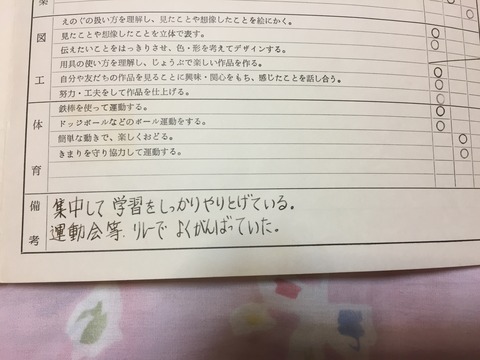 えのぐの扱い方を理解し、見たことや想像したことを絵にかく。
図 見たことや想像したことを立体で表す。 ○
伝えたいことをはっきりさせ、色・形を考えてデザインする。 ○
用具の使い方を理解し、じょうぶで楽しい作品を作る。
工 自分や友だちの作品を見ることに興味・関心をもち、感じたことを話し合う。 ○
努力・工夫をして作品を仕上げる。 ○
体 鉄棒を使って運動する。 ○
ドッジボールなどのボール運動をする。 ○
簡単な動きで、楽しくおどる。 ○
育 きまりを守り協力して運動する。 ○
備考 集中して学習をしっかりやりとげている。
運動会等、リレーでよくがんばっていた。